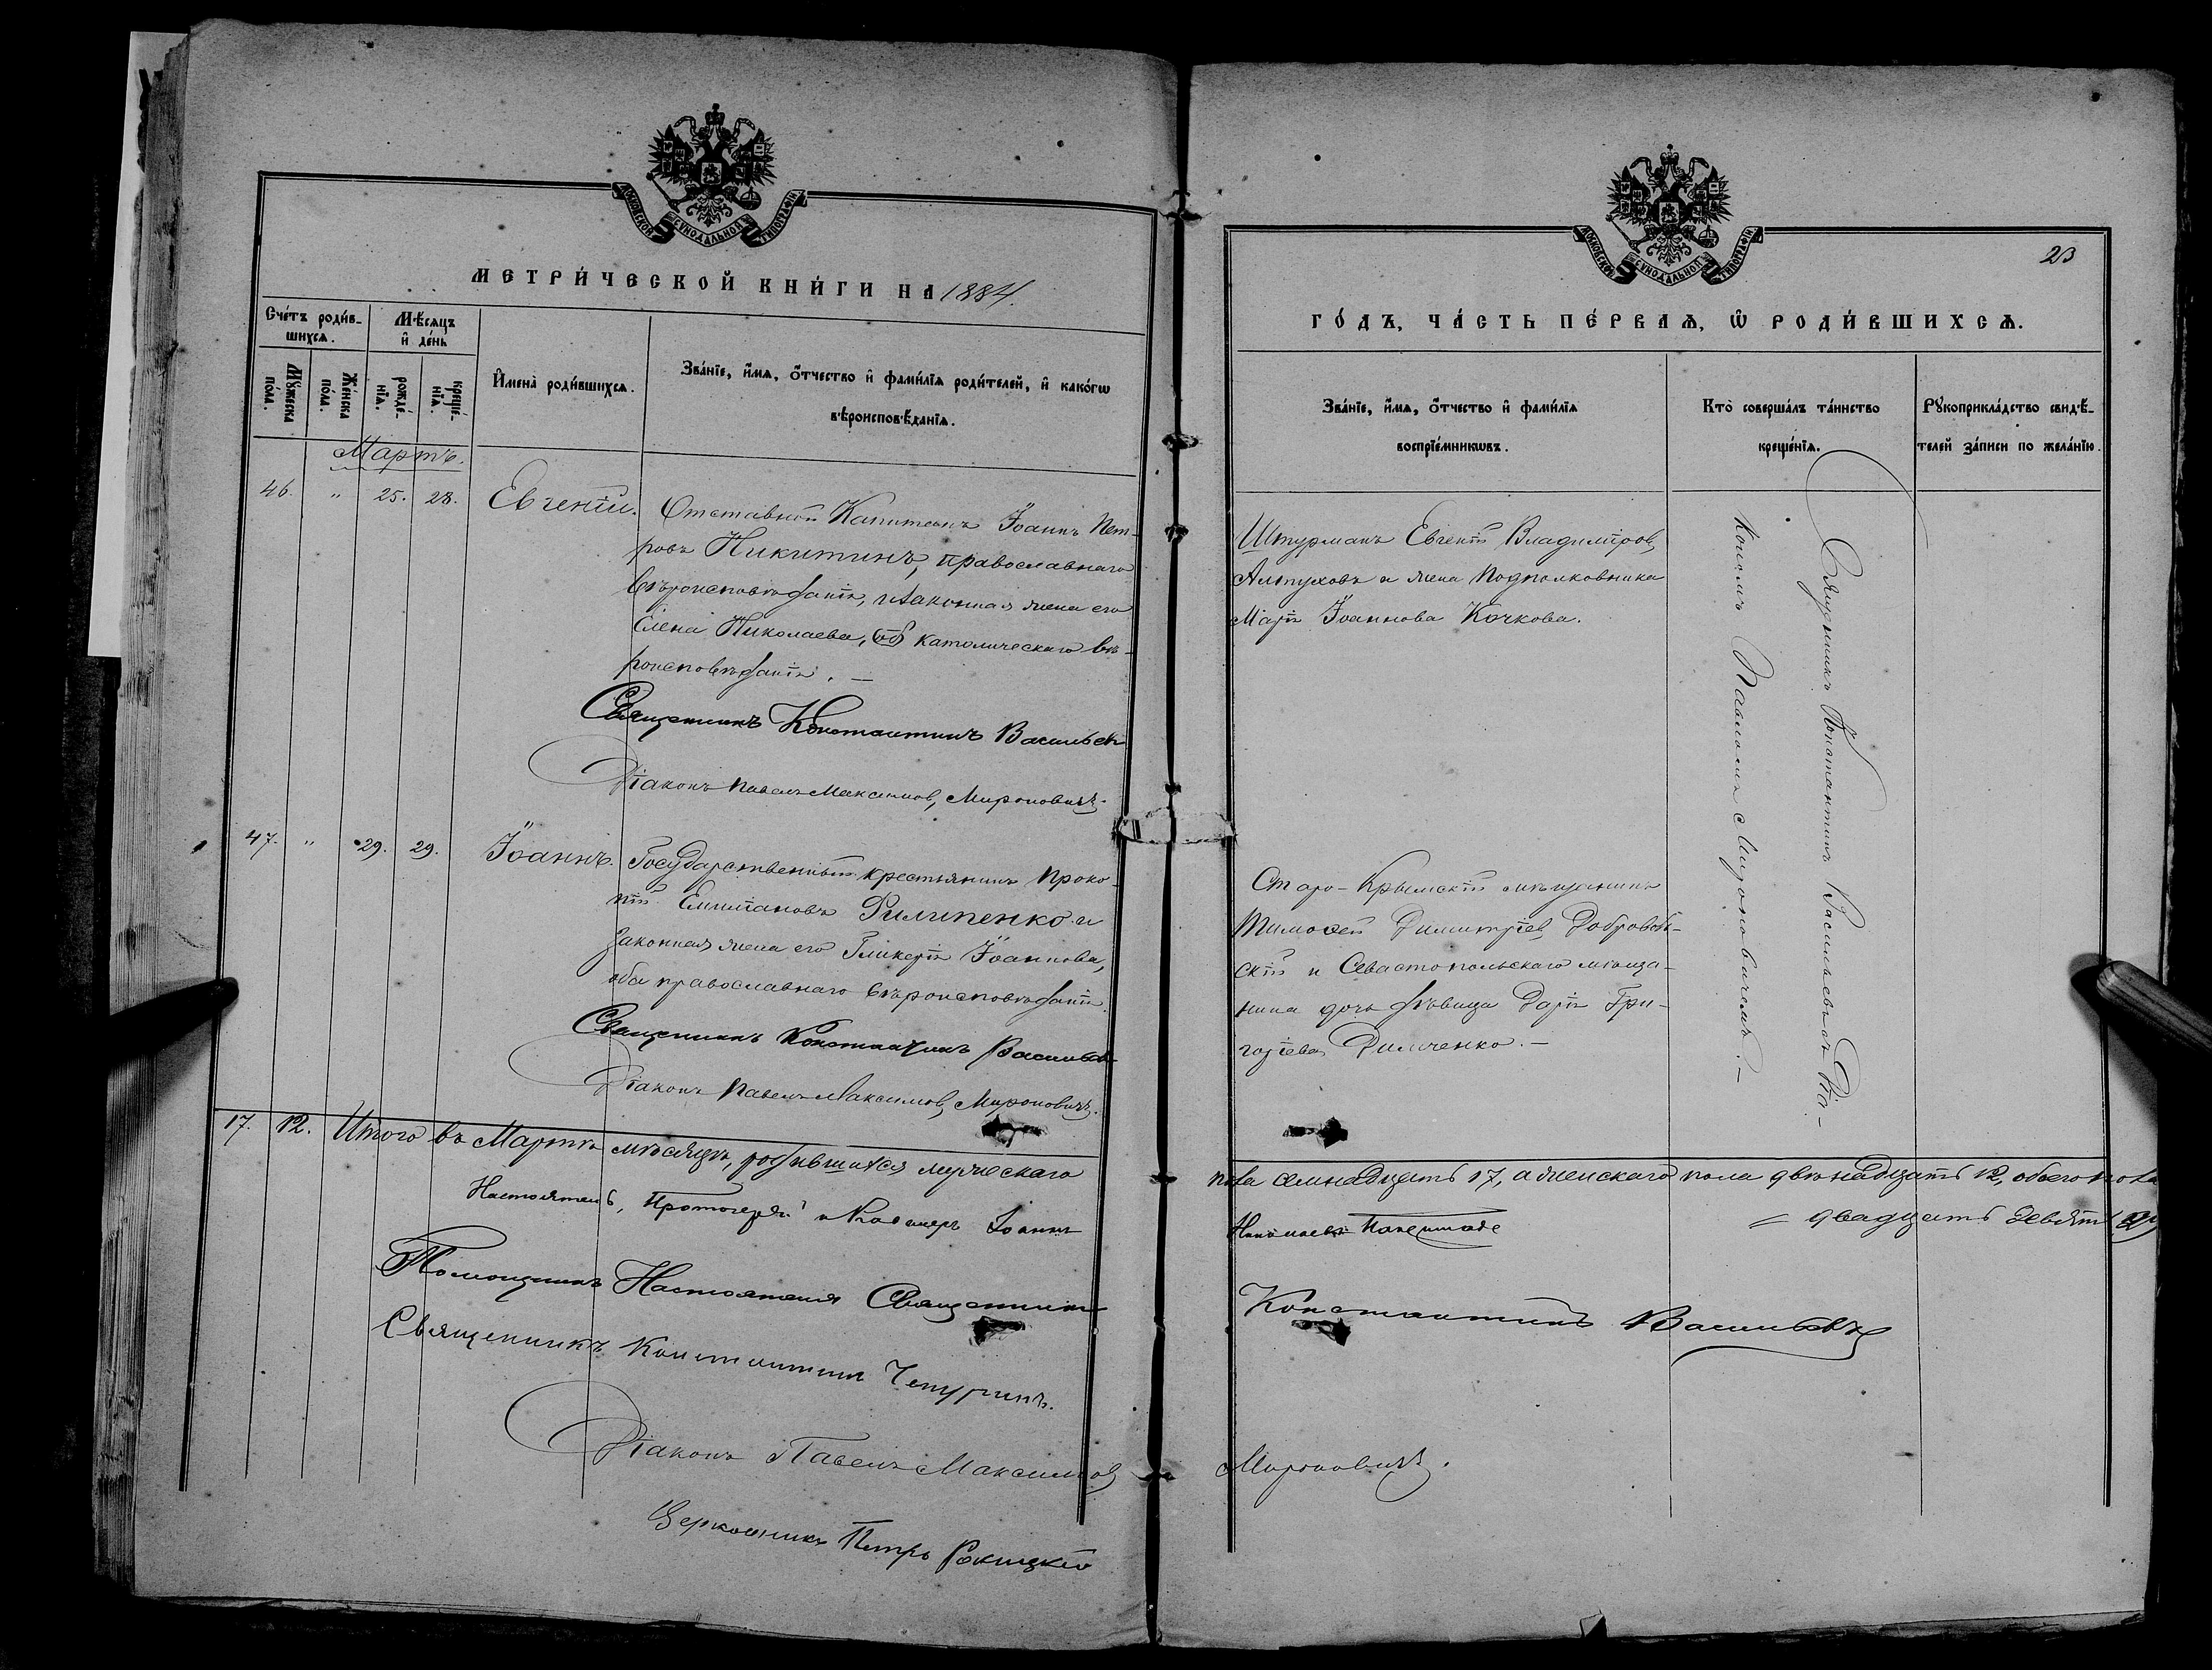 МОСКОВСКОЙ СѴНОДАЛЬНОЙ ТИПОГРАФІИ
МЕТРИ́ЧЕСКОЙ КНИ́ГИ НА 1884.
Сче́тъ роди́в-
шихсѧ.
Мѣ́сѧцъ
и҆ де́нь
Мꙋ́жеска
по́ла.
Же́нска
по́ла.
рожде́-
нїѧ.
креще́-
нїѧ.
И҆мена̀ роди́вшихсѧ.
Зва́нїе, и҆́мѧ, ѻ҆́тчество и҆ фами́лїѧ роди́телей, и҆ како́гѡ
вѣроисповѣ́данїѧ.
Мартъ.
46. " 25. 28. Евгеній.
Отставной Капитанъ Іоаннъ Пет-
ровъ Никитинъ, православнаго
вѣроисповѣданія, и законная жена его
Елена Николаева, католическаго вѣ-
роисповѣданія. —
Священникъ Константинъ Васильев
Діаконъ Павелъ Максимов, Мироновичъ.
47. " 29. 29. Іоаннъ.
Государственный крестьянинъ Проко-
пій Филипенко и
законная жена его Гликерія Іоаннова,
оба православнаго вѣроисповѣданія.
Священникъ Константинъ Васильев
Діаконъ Павелъ Максимов, Мироновичъ.
17. 12. Итого въ Мартѣ мѣсяцѣ, родившихся мужескаго
Настоятель, Протоіерей и Кавалеръ Іоаннъ
Помощникъ Настоятеля Священникъ
Священникъ Константинъ Чепуринъ.
Діаконъ Павелъ Максимов
Церковникъ Петръ Рокицкій
МОСКОВСКОЙ СѴНОДАЛЬНОЙ ТИПОГРАФІИ
23
ГО́ДЪ, ЧА́СТЬ ПЕ́РВАѦ, Ѽ РОДИ́ВШИХСѦ.
Зва́нїе, и҆́мѧ, ѻ҆́тчество и҆ фами́лїѧ
воспрїе́мникѡвъ.
Кто̀ соверша́лъ та́инство
креще́нїѧ.
Рꙋкоприкла́дство свидѣ́-
телей за́писи по жела́нїю.
Штурманъ Евгеній Владиміров
Алтуховъ и жена Подполковника
Марія Іоаннова Кочкова.
Священникъ Константинъ Васильевъ съ Діа-
кономъ Павломъ Мироновичемъ. —
Старо-Крымскій мѣщанинъ
Тимоѳей Димитріев Добровол-
скій и Севастопольскаго мѣща-
нина дочь дѣвица Дарія Гри-
горіева Димченко. —
пола семнадцать 17, а женскаго пола двѣнадцать 12, обоего пола
= двадцать девять 29
Константинъ Васильевъ
Мироновичъ.